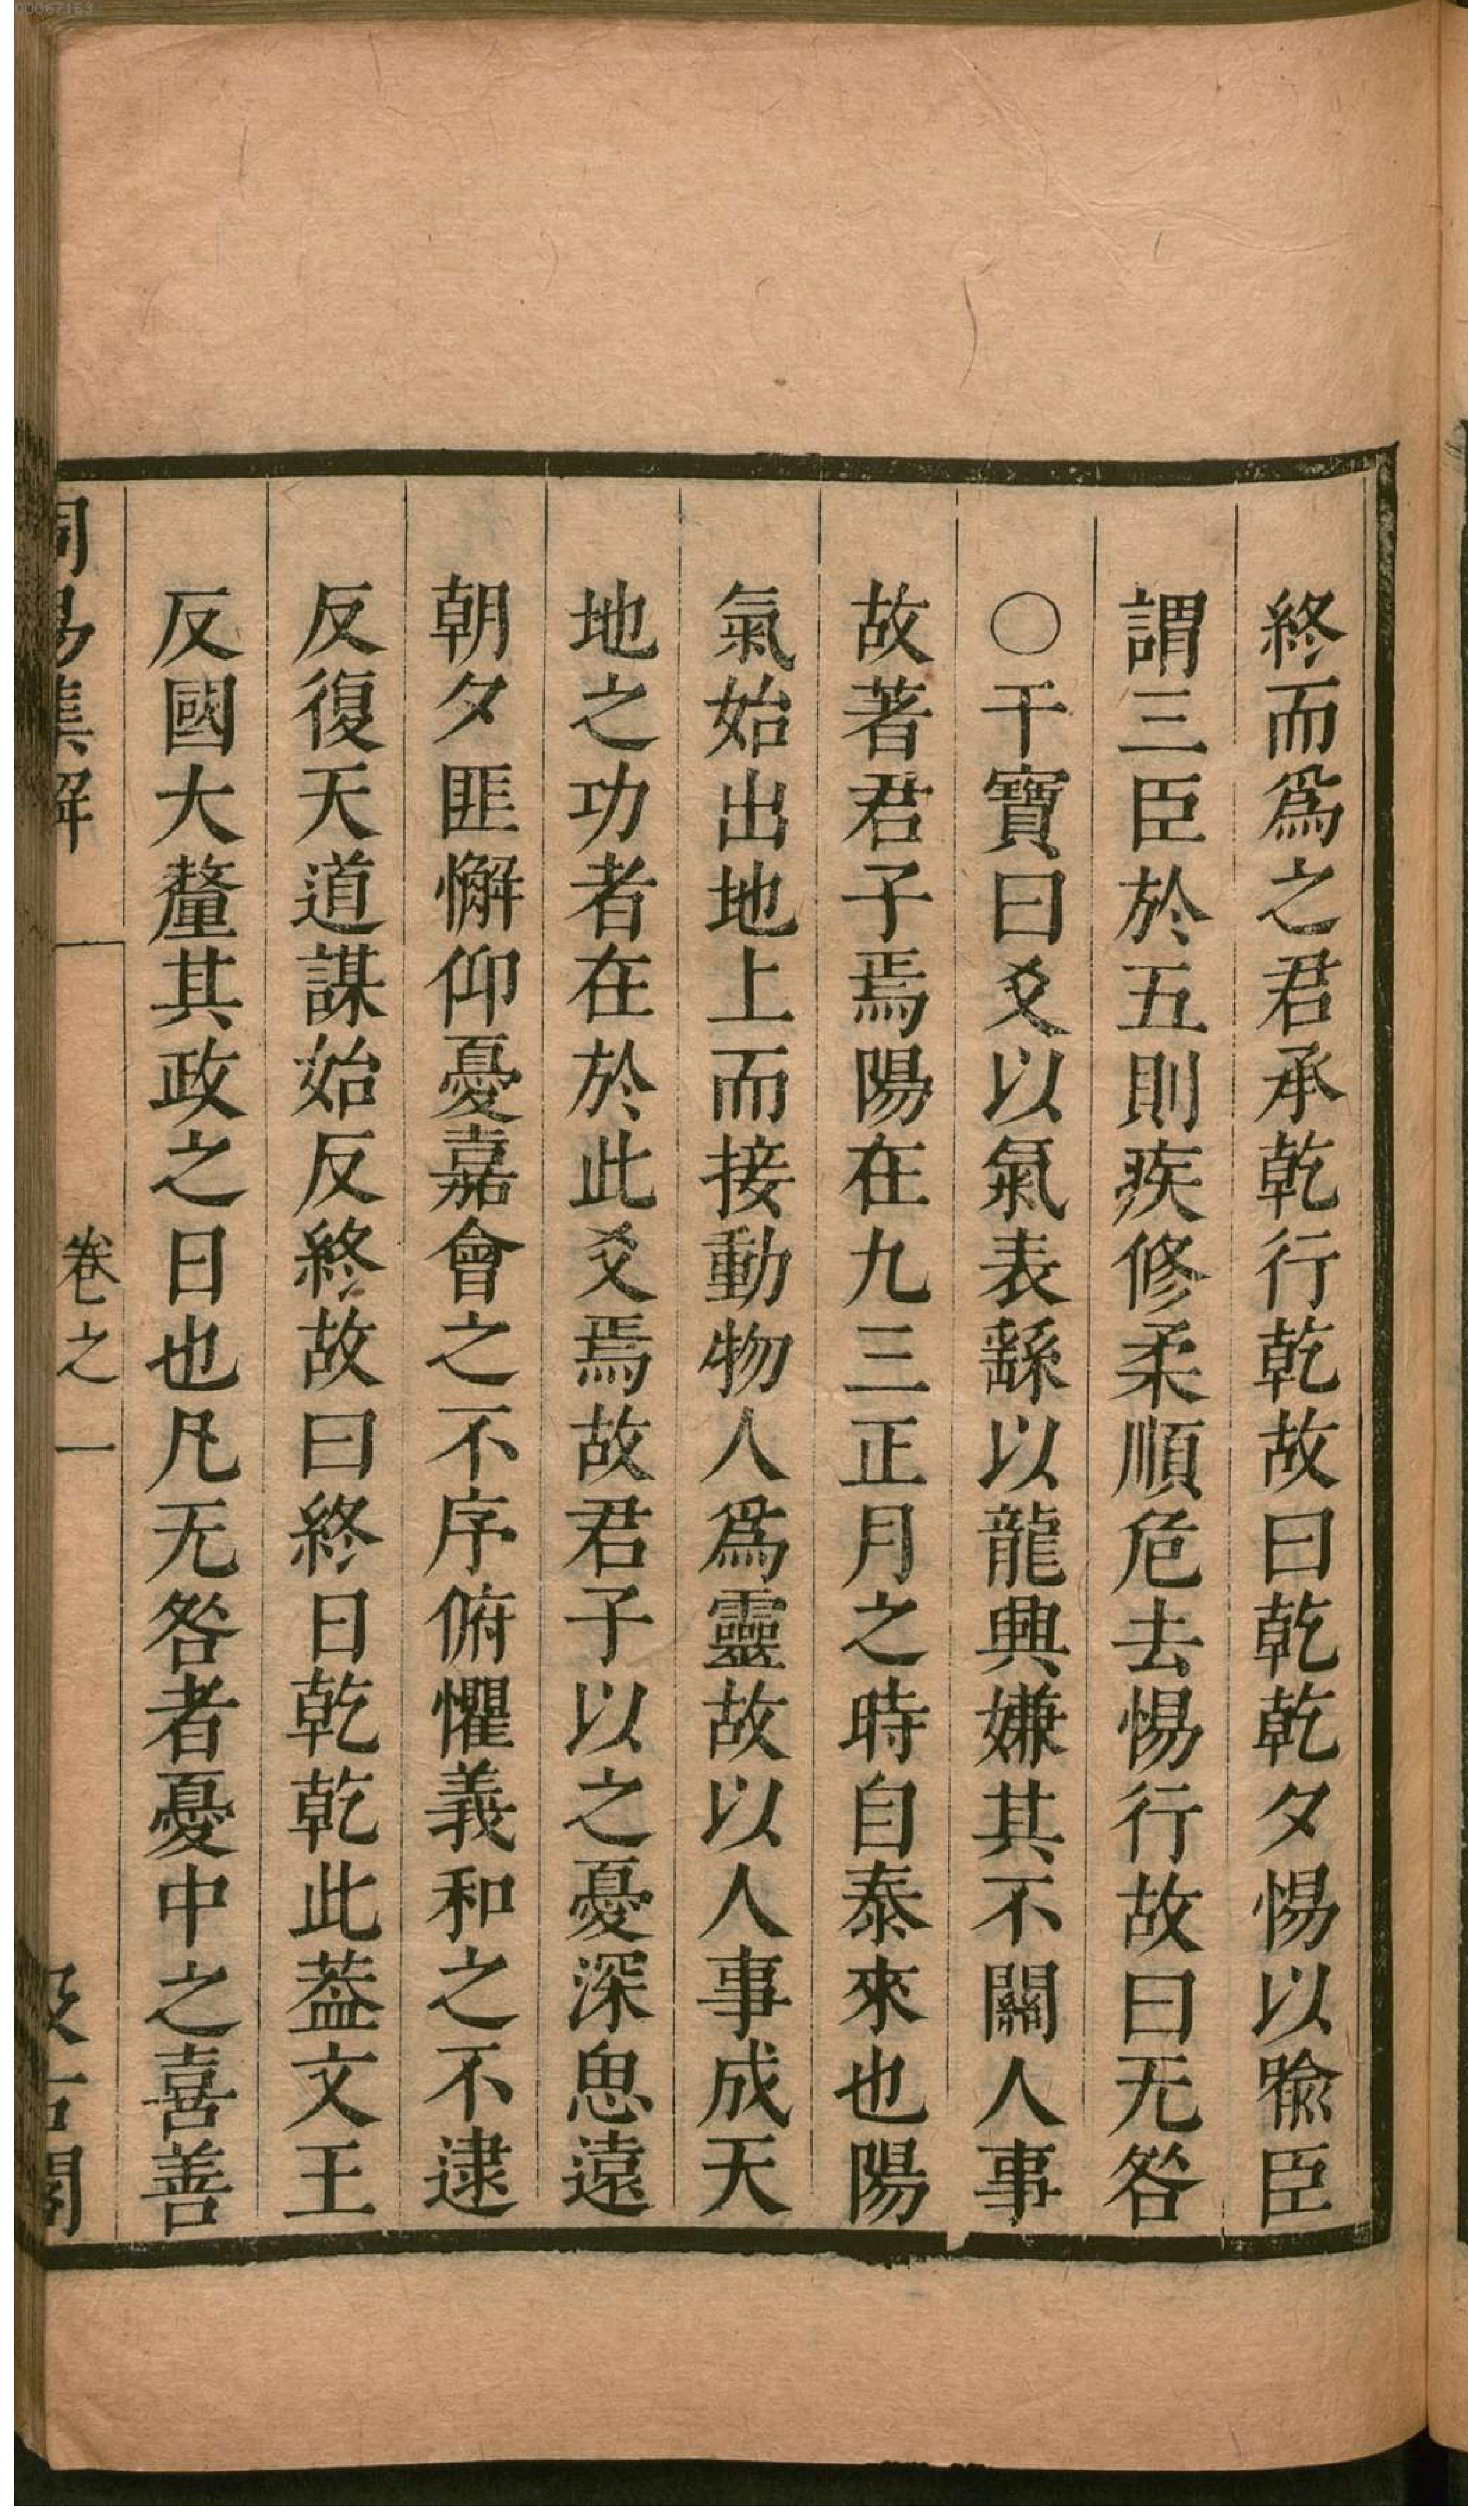 終而爲之君承乾行乾故曰乾乾夕惕以喻臣
謂三臣於五則疾修柔順危去惕行故曰无咎
○干寶曰爻以氣表繇以龍興嫌其不關人事
故著君子焉陽在九三正月之時自泰來也陽
氣始出地上而接動物人爲靈故以人事成天
地之功者在於此爻焉故君子以之憂深思遠
朝夕匪懈仰憂嘉會之不序俯懼義和之不逮
反復天道謀始反終故曰終日乾乾此葢文王
反國大釐其政之日也凡无咎者憂中之喜善
周易集解 卷之一 汲古閣
00067153